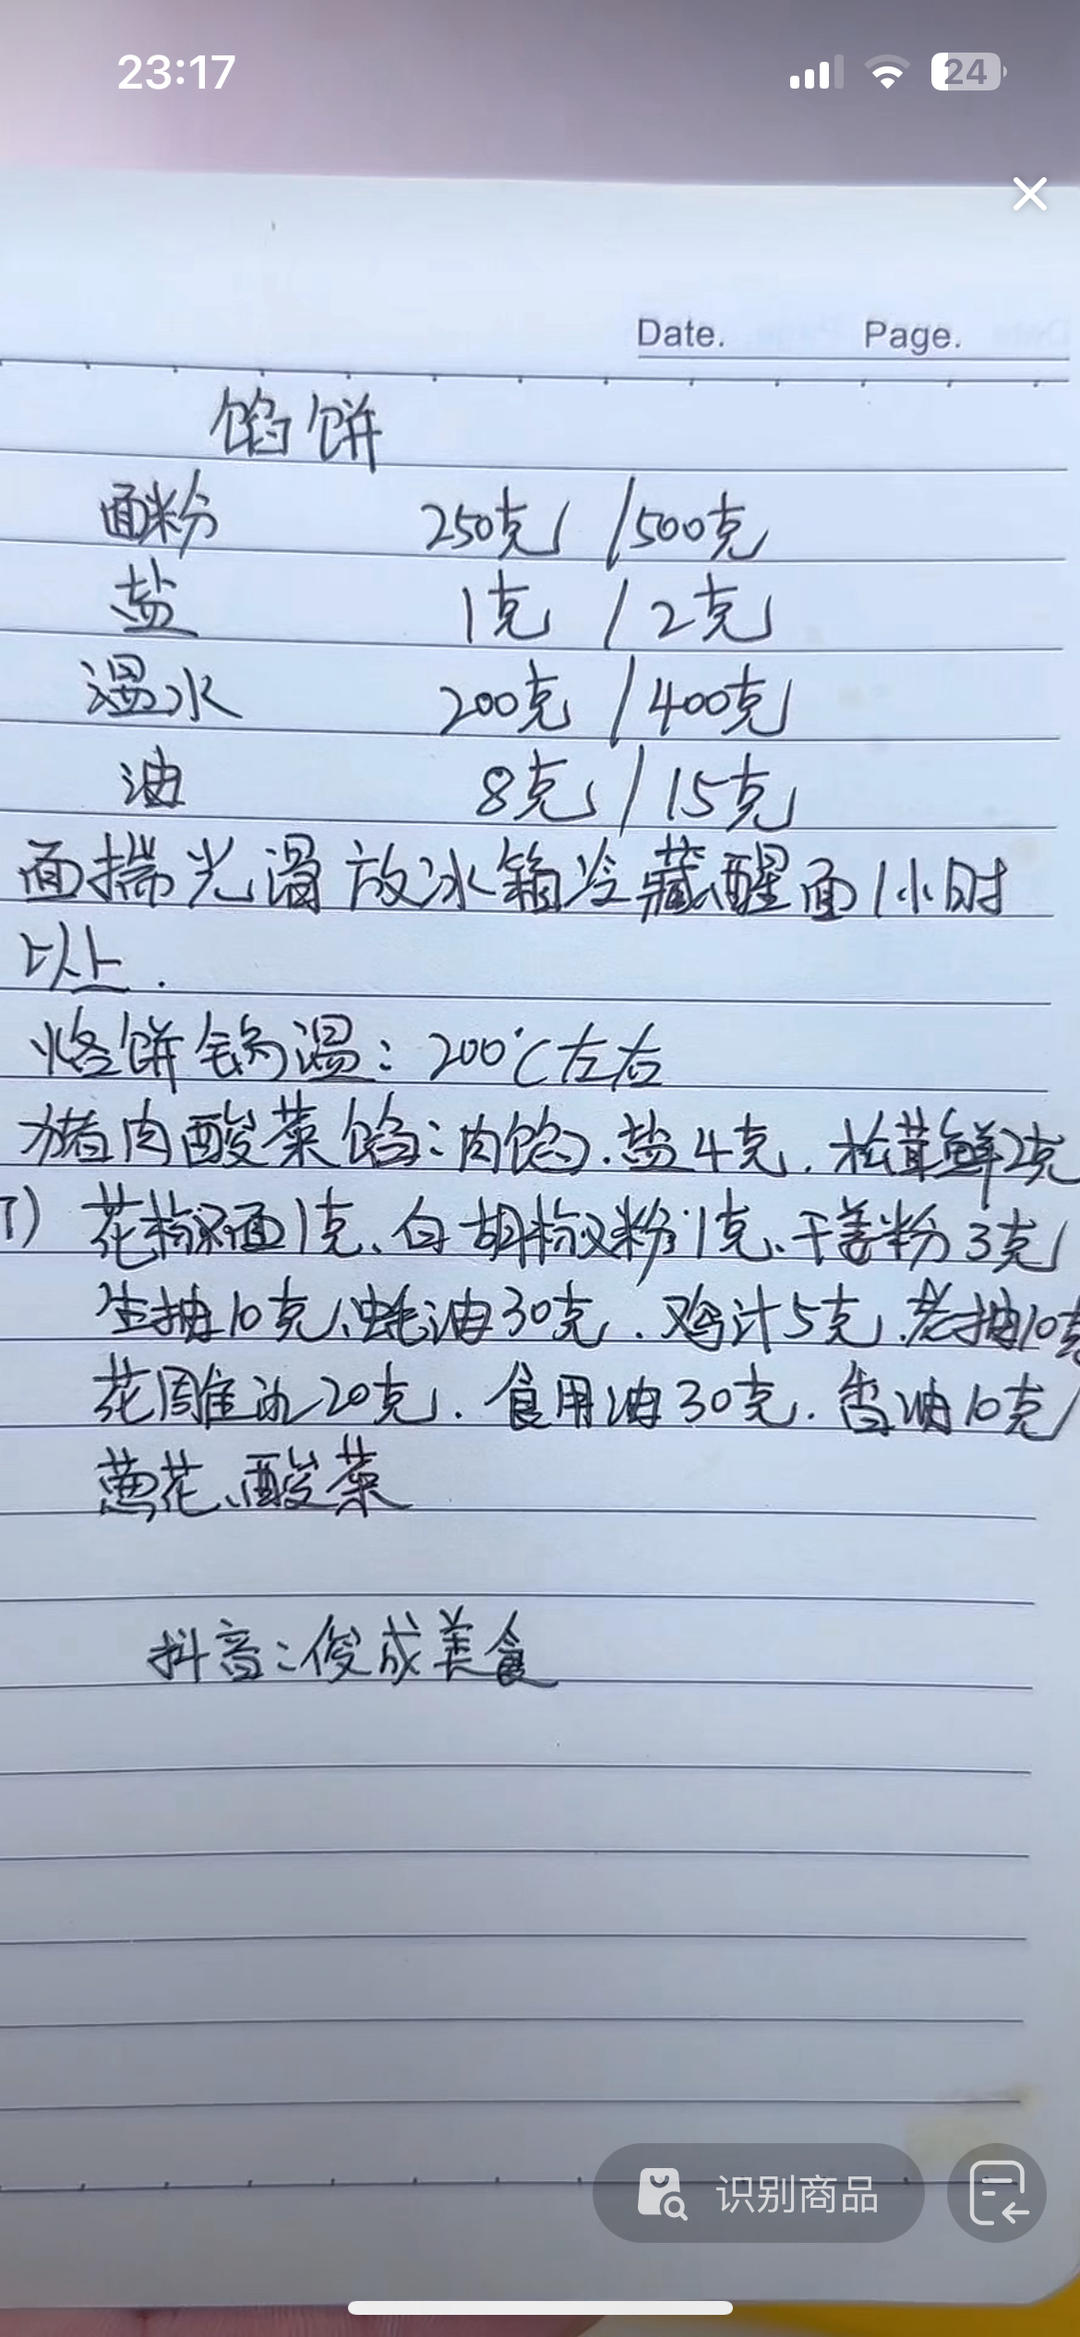 23:17
24
Date. Page.
馅饼
面粉 250克 / 500克
盐 1克 / 2克
温水 200克 / 400克
油 8克 / 15克
面揣光滑放冰箱冷藏醒面1小时
以上.
烙饼锅温: 200℃左右
猪肉酸菜馅: 肉馅、盐4克、松茸鲜2克
花椒面1克、白胡椒粉1克、干姜粉3克
生抽10克、蚝油30克、鸡汁5克、老抽10克
花雕酒20克、食用油30克、香油10克
葱花、酸菜
抖音: 俊成美食
识别商品